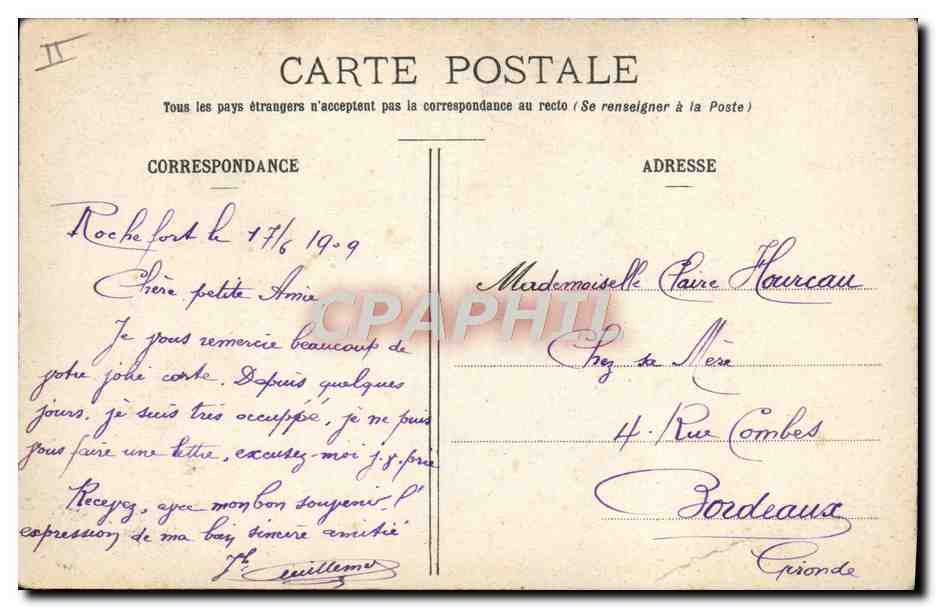 II
CARTE POSTALE
Tous les pays étrangers n'acceptent pas la correspondance au recto (Se renseigner à la Poste)
CORRESPONDANCE
Rochefort le 17/6 1909
Chère petite Amie
Je vous remercie beaucoup de
votre jolie carte. Depuis quelques
jours, je suis très occuppé, je ne puis
vous faire une lettre, excusez-moi j. v. prie
Recevez, avec mon bon souvenir, l'
expression de ma bien sincère amitié
ADRESSE
Mademoiselle Claire Hourcau
Chez sa Mère
4. Rue Combes
Bordeaux
Gironde
CPAPHIL